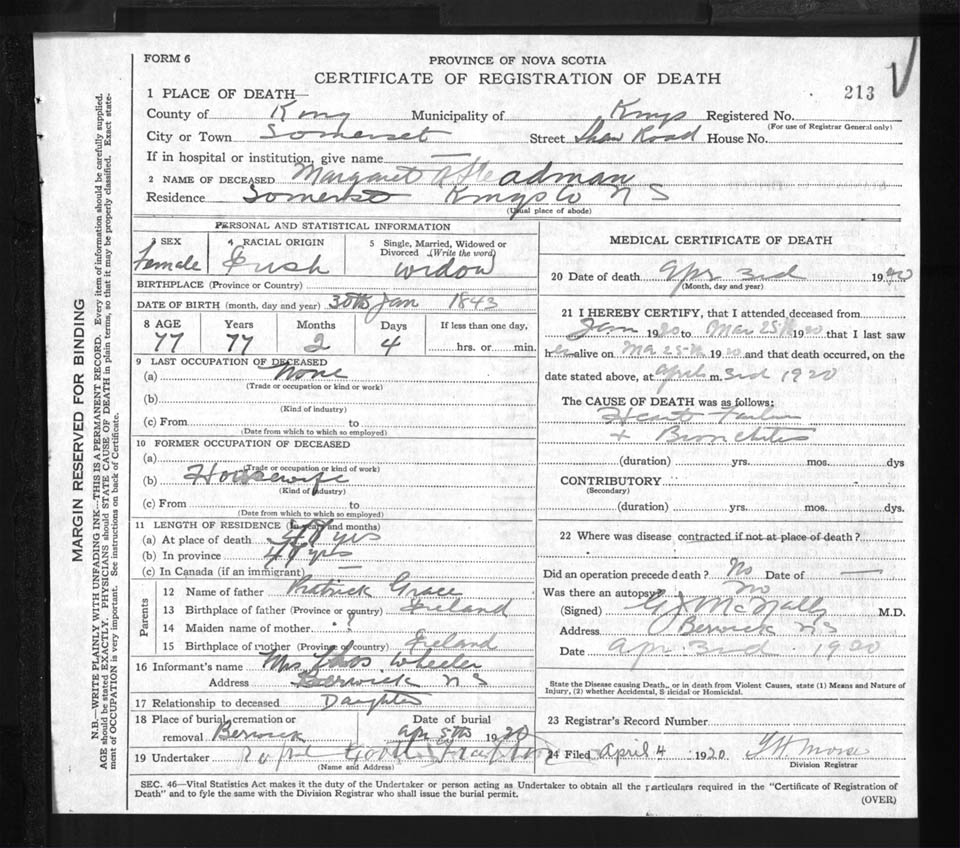 FORM 6
PROVINCE OF NOVA SCOTIA
CERTIFICATE OF REGISTRATION OF DEATH
213
1 PLACE OF DEATH—
County of King Municipality of Kings Registered No.
(For use of Registrar General only)
City or Town Somerset Street Shaw Road House No.
If in hospital or institution, give name —
2 NAME OF DECEASED Margaret Steadman
Residence Somerset Kings Co N S
(Usual place of abode)
PERSONAL AND STATISTICAL INFORMATION
3 SEX Female
4 RACIAL ORIGIN Irish
5 Single, Married, Widowed or Divorced (Write the word) widow
BIRTHPLACE (Province or Country)
DATE OF BIRTH (month, day and year) 30th Jan 1843
8 AGE Years Months Days If less than one day,
77 77 2 4 hrs. or min.
9 LAST OCCUPATION OF DECEASED
(a) None
(Trade or occupation or kind or work)
(b)
(Kind of industry)
(c) From to
(Date from which to which so employed)
10 FORMER OCCUPATION OF DECEASED
(a)
(Trade or occupation or kind of work)
(b) Housewife
(Kind of industry)
(c) From to
(Date from which to which so employed)
11 LENGTH OF RESIDENCE (In years and months)
(a) At place of death yrs
(b) In province yrs
(c) In Canada (if an immigrant) —
Parents
12 Name of father Patrick Grace
13 Birthplace of father (Province or country) Ireland
14 Maiden name of mother ?
15 Birthplace of mother (Province of country) Ireland
16 Informant's name Mrs Thos Wheeler
Address Berwick N S
17 Relationship to deceased Daughter
18 Place of burial, cremation or removal Berwick
Date of burial Apr 5th 1920
19 Undertaker
(Name and Address)
MEDICAL CERTIFICATE OF DEATH
20 Date of death Apr 3rd 1920
(Month, day and year)
21 I HEREBY CERTIFY, that I attended deceased from
Jan 1920 to Mar 25th 1920 that I last saw
her alive on Mar 25th 1920 and that death occurred, on the
date stated above, at April m. 3rd 1920
The CAUSE OF DEATH was as follows:
Heart Failure
+ Bronchitis
(duration) yrs. mos. dys
CONTRIBUTORY
(Secondary)
(duration) yrs. mos. dys.
22 Where was disease contracted if not at place of death?
Did an operation precede death? No Date of —
Was there an autopsy? No
(Signed) G J McNally M.D.
Address Berwick N S
Date Apr 3rd 1920
State the Disease causing Death, or in death from Violent Causes, state (1) Means and Nature of
Injury, (2) whether Accidental, Suicidal or Homicidal.
23 Registrar's Record Number
24 Filed April 4 1920
Division Registrar
SEC. 46—Vital Statistics Act makes it the duty of the Undertaker or person acting as Undertaker to obtain all the particulars required in the "Certificate of Registration of
Death" and to fyle the same with the Division Registrar who shall issue the burial permit.
(OVER)
MARGIN RESERVED FOR BINDING
N.B.—WRITE PLAINLY WITH UNFADING INK—THIS IS A PERMANENT RECORD. Every item of information should be carefully supplied.
AGE should be stated EXACTLY. PHYSICIANS should STATE CAUSE OF DEATH in plain terms, so that it may be properly classified. Exact statement
of OCCUPATION is very important. See instructions on back of Certificate.